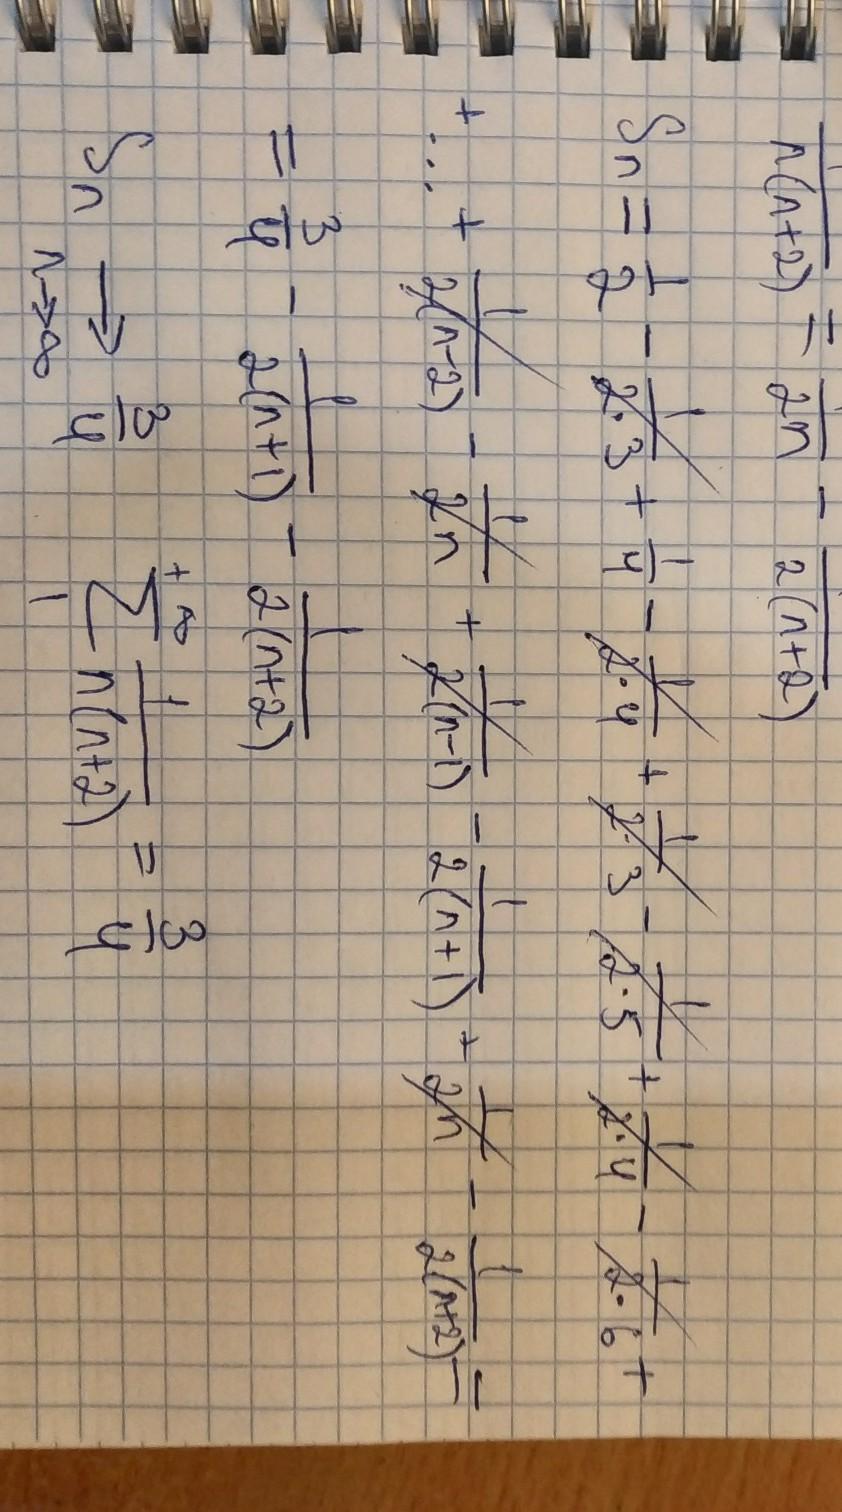 1/(n(n+2)) = 1/(2n) - 1/(2(n+2))
Sn = 1/2 - 1/(2·3) + 1/4 - 1/(2·4) + 1/(2·3) - 1/(2·5) + 1/(2·4) - 1/(2·6) +
+ ... + 1/(2(n-2)) - 1/(2n) + 1/(2(n-1)) - 1/(2(n+1)) + 1/(2n) - 1/(2(n+2)) =
= 3/4 - 1/(2(n+1)) - 1/(2(n+2))
Sn → 3/4 n→∞ ∑ +∞ 1 1/(n(n+2)) = 3/4